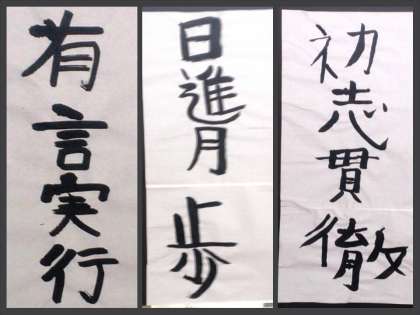 有言実行
日進月歩
初志貫徹